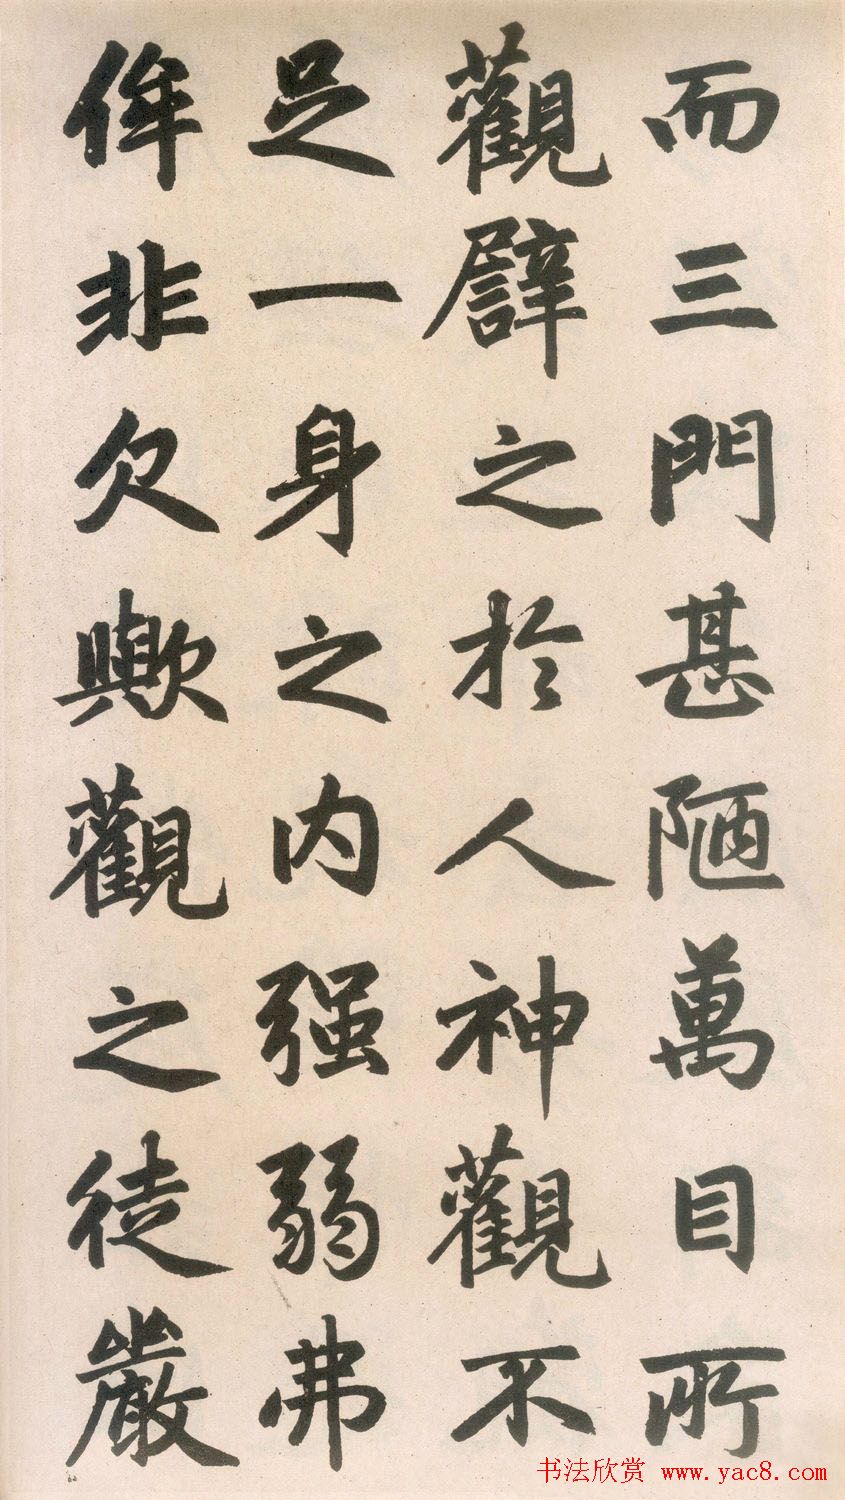 而三門甚陋萬目所
觀譬之於人神觀不
足一身之内强弱弗
侔非欠歟觀之徒嚴
书法欣赏 www.yac8.com